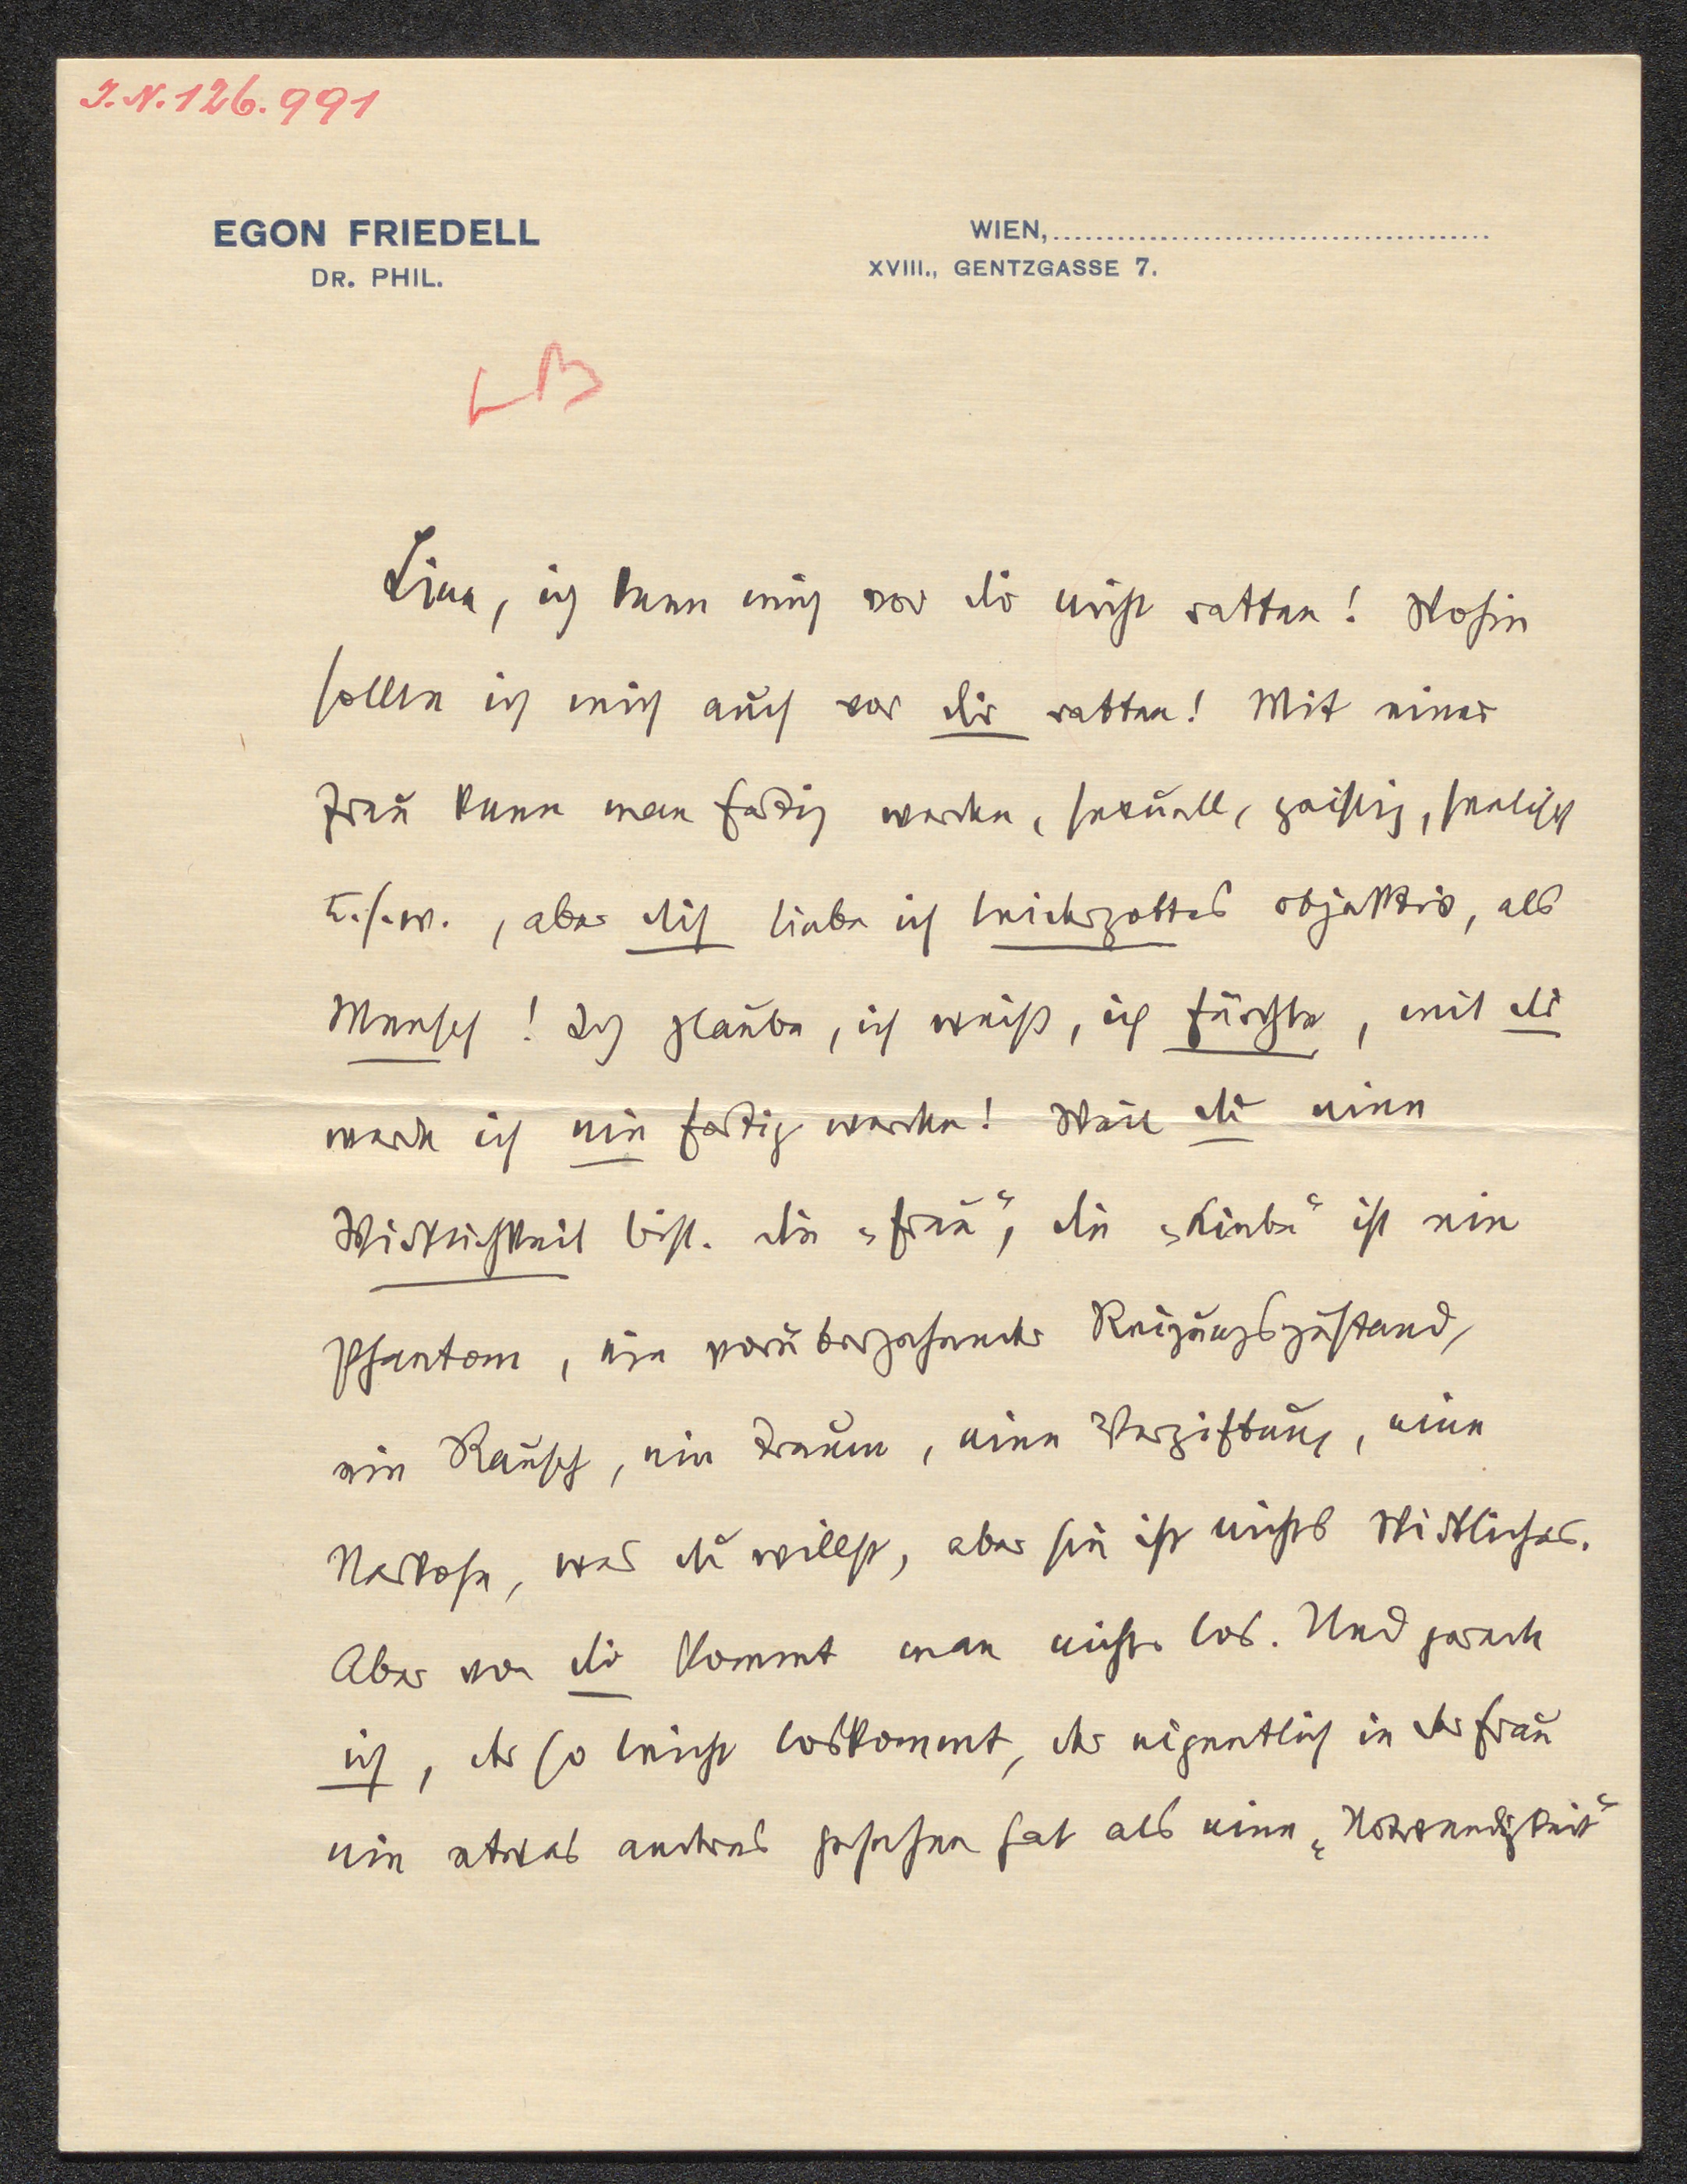 I.N. 126.991
EGON FRIEDELL
DR. PHIL.
WIEN,
XVIII., GENTZGASSE 7.
LB
Lina, ich kann mich vor dir nicht retten! Wohin
sollte ich mich auch vor dir retten! Mit einer
Frau kann man fertig werden, sexuell, geistig, seelisch
u.s.w., aber dich liebe ich leidergottes objektiv, als
Mensch! Ich glaube, ich weiß, ich fürchte, mit dir
werde ich nie fertig werden! Weil du eine
Wirklichkeit bist. Die „Frau“, die „Liebe“ ist ein
Phantom, ein vorübergehender Reizungszustand,
ein Rausch, ein Traum, eine Vergiftung, eine
Narkose, was du willst, aber sie ist nichts Wirkliches.
Aber von dir kommt man nicht los. Und gerade
ich, der so leicht loskommt, der eigentlich in der Frau
nie etwas anderes gesehen hat als eine „Notwendigkeit“